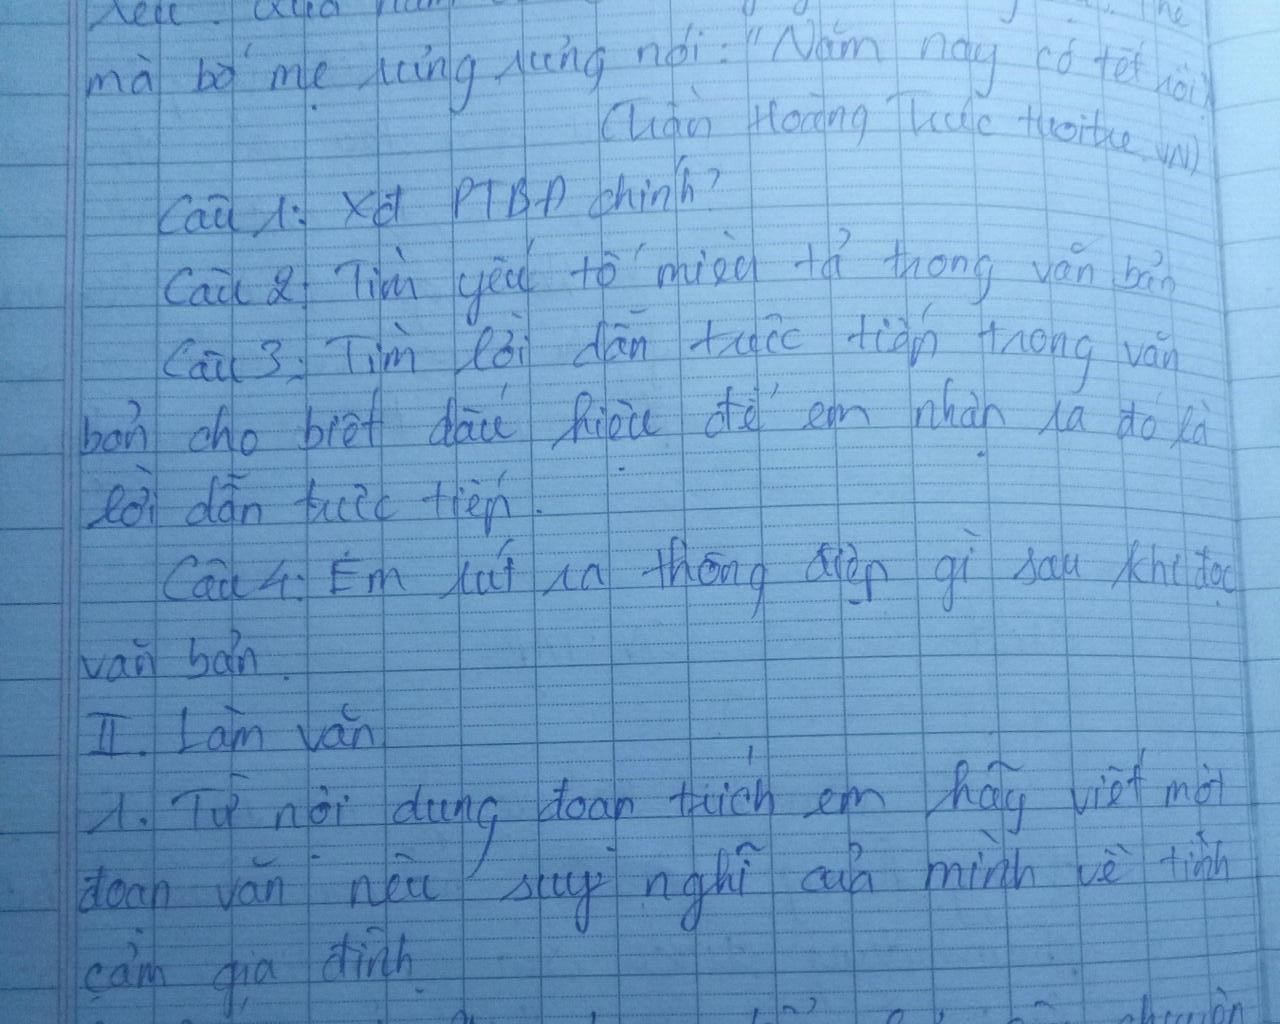 mà bố mẹ rưng rưng nói: "Năm nay có tết rồi"
(Trần Hoàng Trúc tuoitre.vn)
Câu 1: Xđ PTBĐ chính?
Câu 2: Tìm yếu tố miêu tả trong văn bản
Câu 3: Tìm lời dẫn trực tiếp trong văn
bản cho biết dấu hiệu để em nhận ra đó là
lời dẫn trực tiếp.
Câu 4: Em rút ra thông điệp gì sau khi đọc
văn bản.
II. Làm văn
1. Từ nội dung đoạn trích em hãy viết một
đoạn văn nêu suy nghĩ của mình về tình
cảm gia đình.